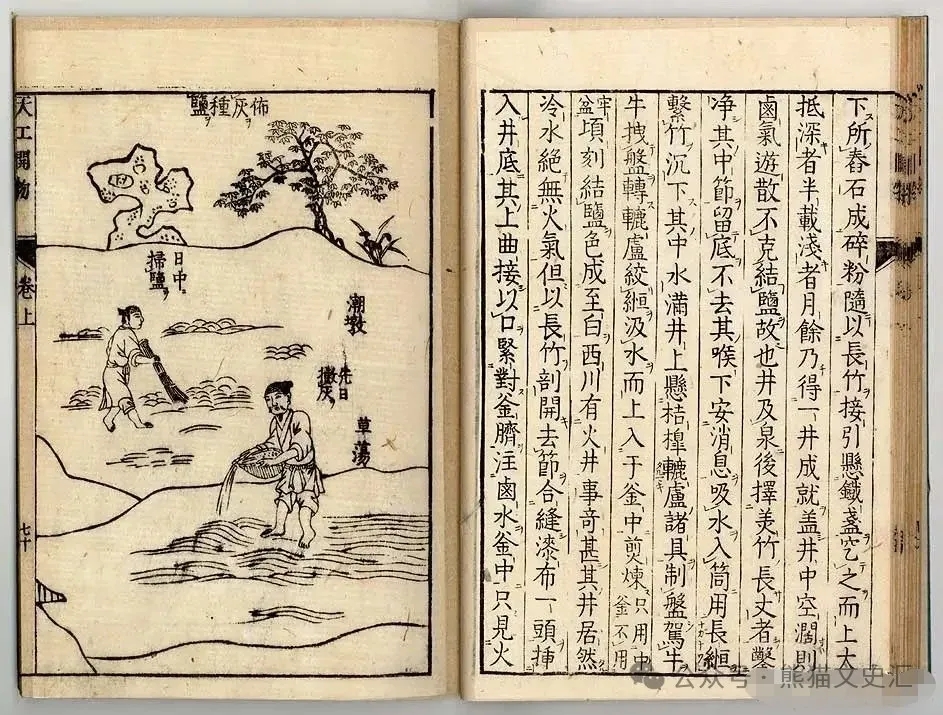 下所舂石成碎粉隨以長竹接引懸鐵盞穵之而上大
抵深者半載淺者月餘乃得一井成就盖井中空闊則
鹵氣遊散不克結鹽故也井及泉後擇美竹長丈者鑿
净其中節留底不去其喉下安消息吸水入筒用長縆
繫竹沉下其中水滿井上懸桔槹轆轤諸具制盤駕牛
牛拽盤轉轆轤絞縆汲水而上入于釜中煎煉只用中釜不用
牢盆頃刻結鹽色成至白西川有火井事奇甚其井居然
冷水絕無火氣但以長竹剖開去節合縫漆布一頭插
入井底其上曲接以口緊對釜臍注鹵水釜中只見火
佈灰種鹽
潮墩
先日
撒灰
草蕩
日中
掃鹽
天工開物
卷上
七十
公众号·熊猫文史汇